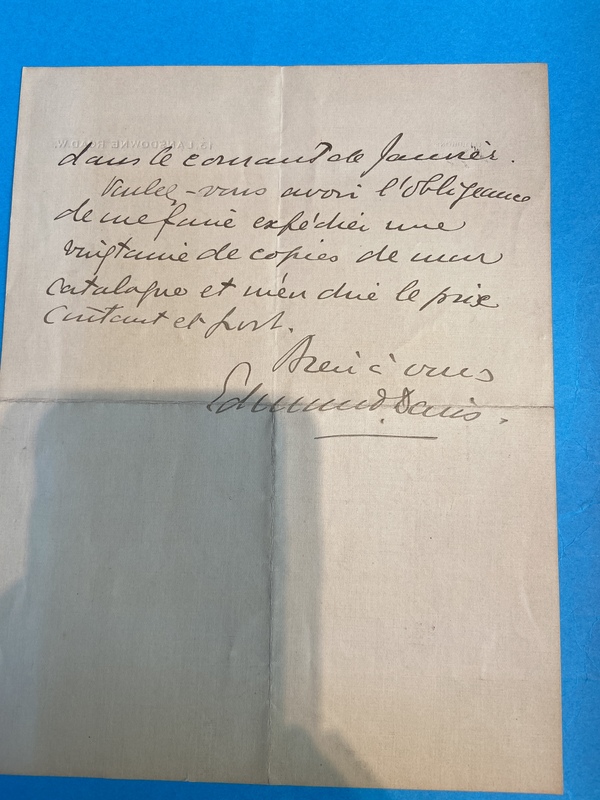 13. LANSDOWNE ROAD. W.
dans le courant de Janvier.
Voulez-vous avoir l'obligeance
de me faire expédier une
vingtaine de copies de mon
catalogue et m'en dire le prix
Cöutant et port.
Bien à vous
Edmund. Davis.